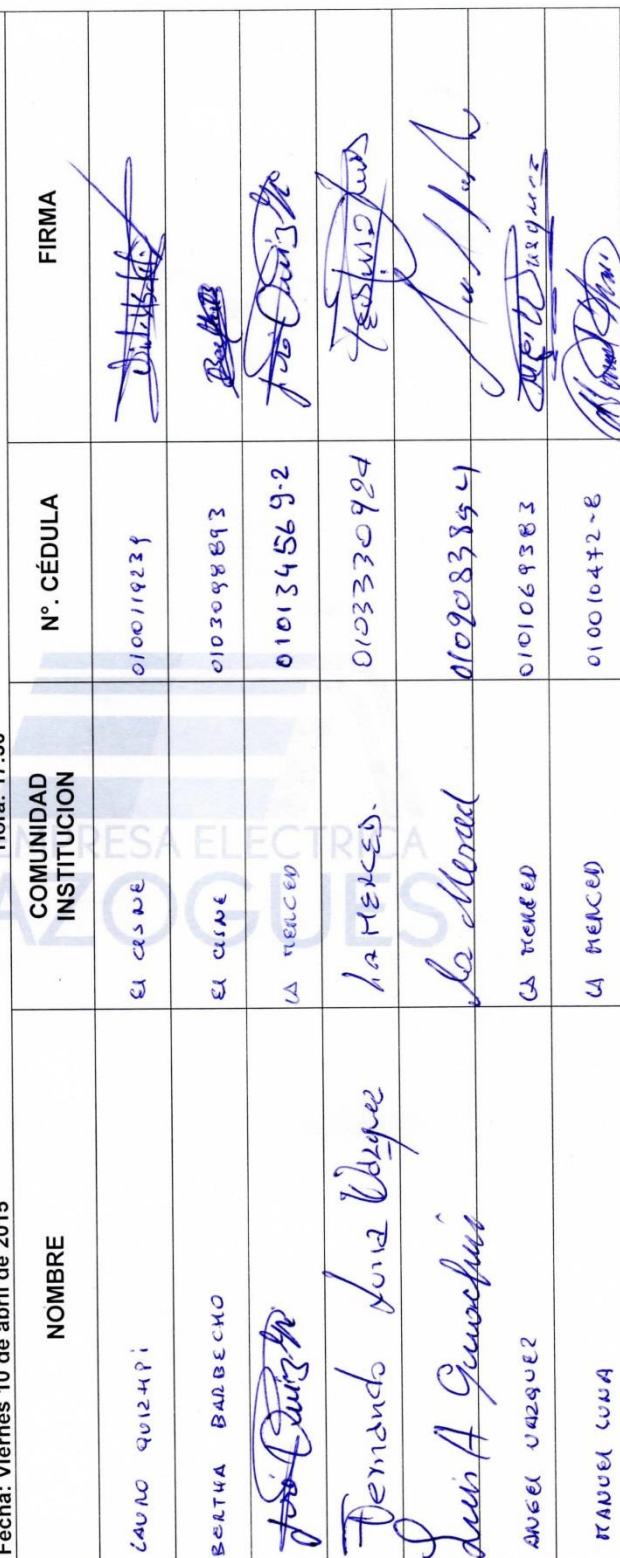 Fecha: Viernes 10 de abril de 2015 Hora: 17:30
NOMBRE COMUNIDAD INSTITUCION N°. CÉDULA FIRMA
LAURO QUIZHPI El CISNE 0100119239
BERTHA BARBECHO El CISNE 0103098893
LA MERCED 010134569-2
Fernando Luna Vázquez La MERCED. 0103330924
Luis A La Merced
ANGEL VAZQUEZ LA MERCED 0101069383
MANUEL LUNA LA MERCED 010010472-8
EMPRESA ELECTRICA
AZOGUES